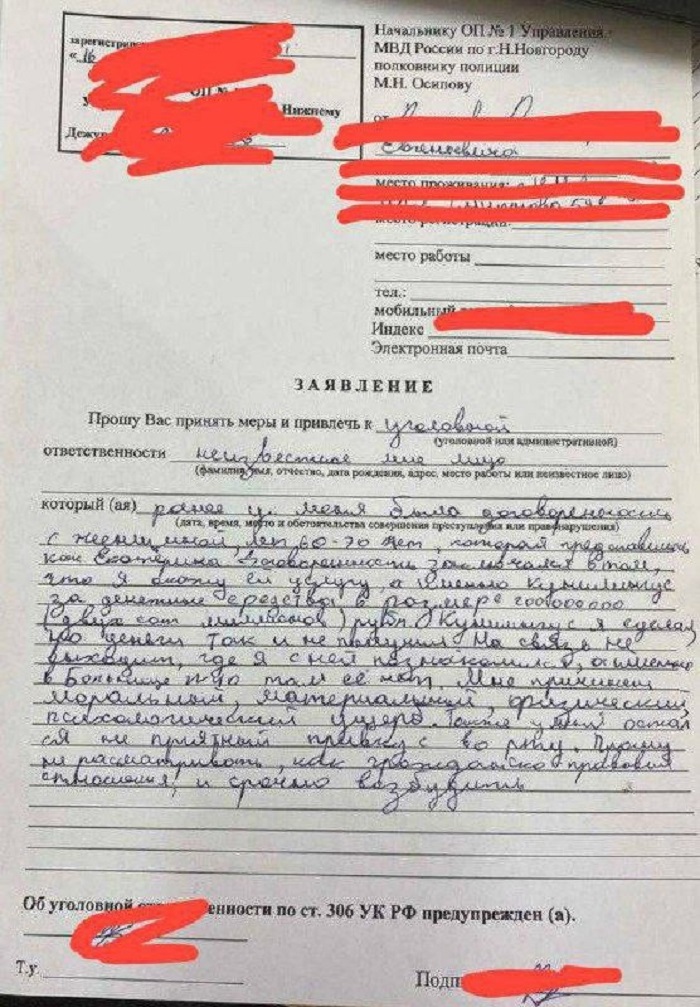 зарегистрир
« 16
ОП №
Нижнему
Дежу
Начальнику ОП № 1 Управления
МВД России по г.Н.Новгороду
полковнику полиции
М.Н. Осипову
от
Евгеньевича
место проживания:
место регистрации:
место работы
тел.:
мобильный
Индекс
Электронная почта
ЗАЯВЛЕНИЕ
Прошу Вас принять меры и привлечь к уголовной
(уголовной или административной)
ответственности неизвестное мне лицо
(фамилия, имя, отчество, дата рождения, адрес, место работы или неизвестное лицо)
который (ая) ранее у меня была договоренность
(дата, время, место и обстоятельства совершения преступления или правонарушения)
с женщиной, лет 60-70 лет, которая представилась
как Екатерина Договоренность заключался в том,
что я окажу ей услугу, а именно Кунилингус
за денежные средства в размере 200000000
(двух сот миллионов) руб. Кунилингус я сделал
но деньги так и не получил На связь не
выходит, где я с ней познакомился, а именно
в больнице там её нет. Мне причинен
моральный, материальный, физический,
психологический ущерб Также у меня остал
ся не приятный привкус во рту. Прошу
не рассматривать, как гражданско правовые
отношения, и срочно возбудить
Об уголовной енности по ст. 306 УК РФ предупрежден (а).
Т.у.
Подп